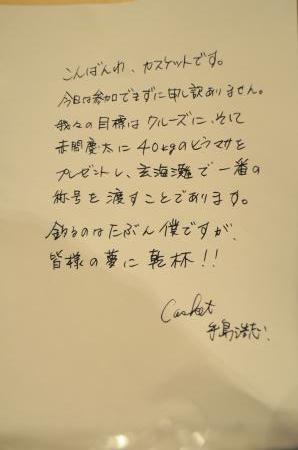 こんばんわ、カスケットです。
今日は参加できずに申し訳ありません。
我々の目標はクルーズに、そして
赤間慶太に40kgのヒラマサを
プレゼントし、玄海灘で一番の
称号を渡すことであります。
釣るのはたぶん僕ですが、
皆様の夢に乾杯!!
Casket
手島